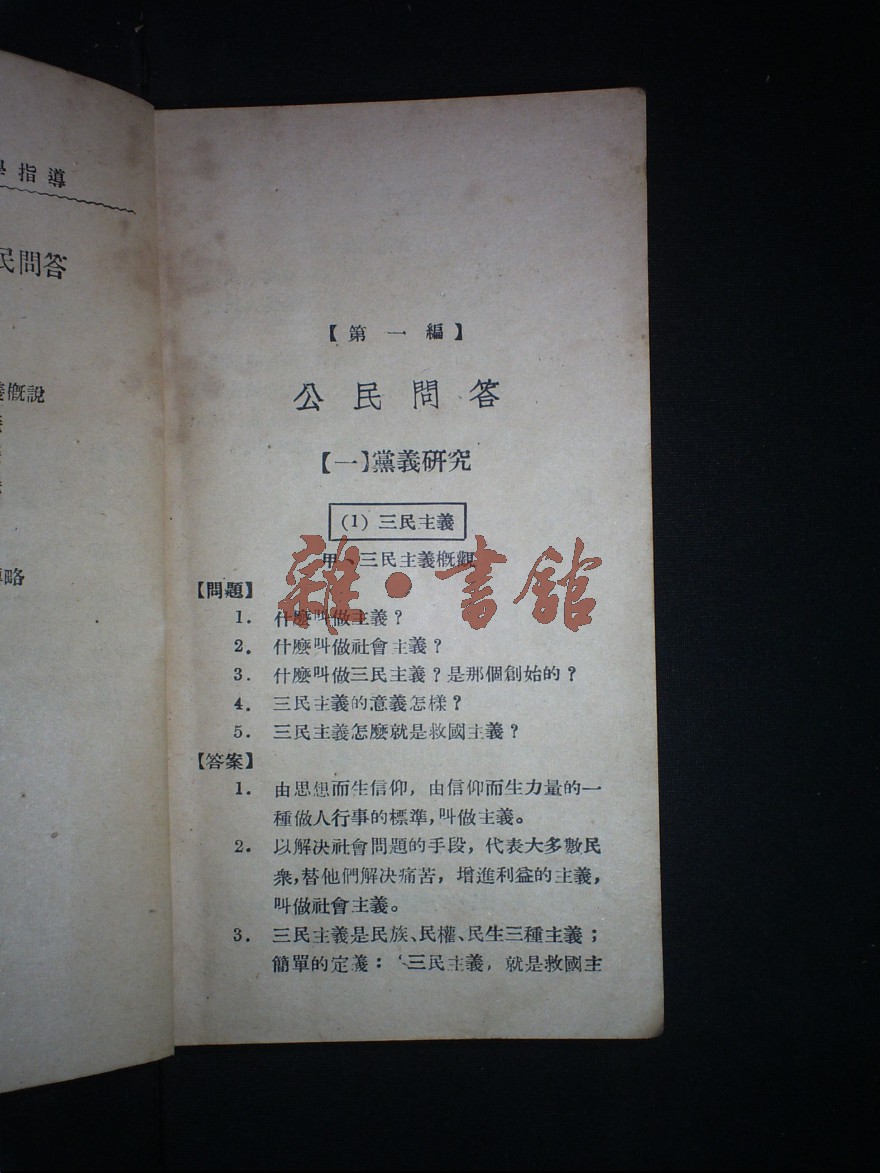 指導
民問答
概說
略
【第一編】
公民問答
【一】黨義研究
(1) 三民主義
甲、三民主義概觀
【問題】
1. 什麼叫做主義？
2. 什麼叫做社會主義？
3. 什麼叫做三民主義？是那個創始的？
4. 三民主義的意義怎樣？
5. 三民主義怎麼就是救國主義？
【答案】
1. 由思想而生信仰，由信仰而生力量的一
種做人行事的標準，叫做主義。
2. 以解決社會問題的手段，代表大多數民
衆，替他們解決痛苦，增進利益的主義，
叫做社會主義。
3. 三民主義是民族、民權、民生三種主義；
簡單的定義：‘三民主義，就是救國主
雜·書館